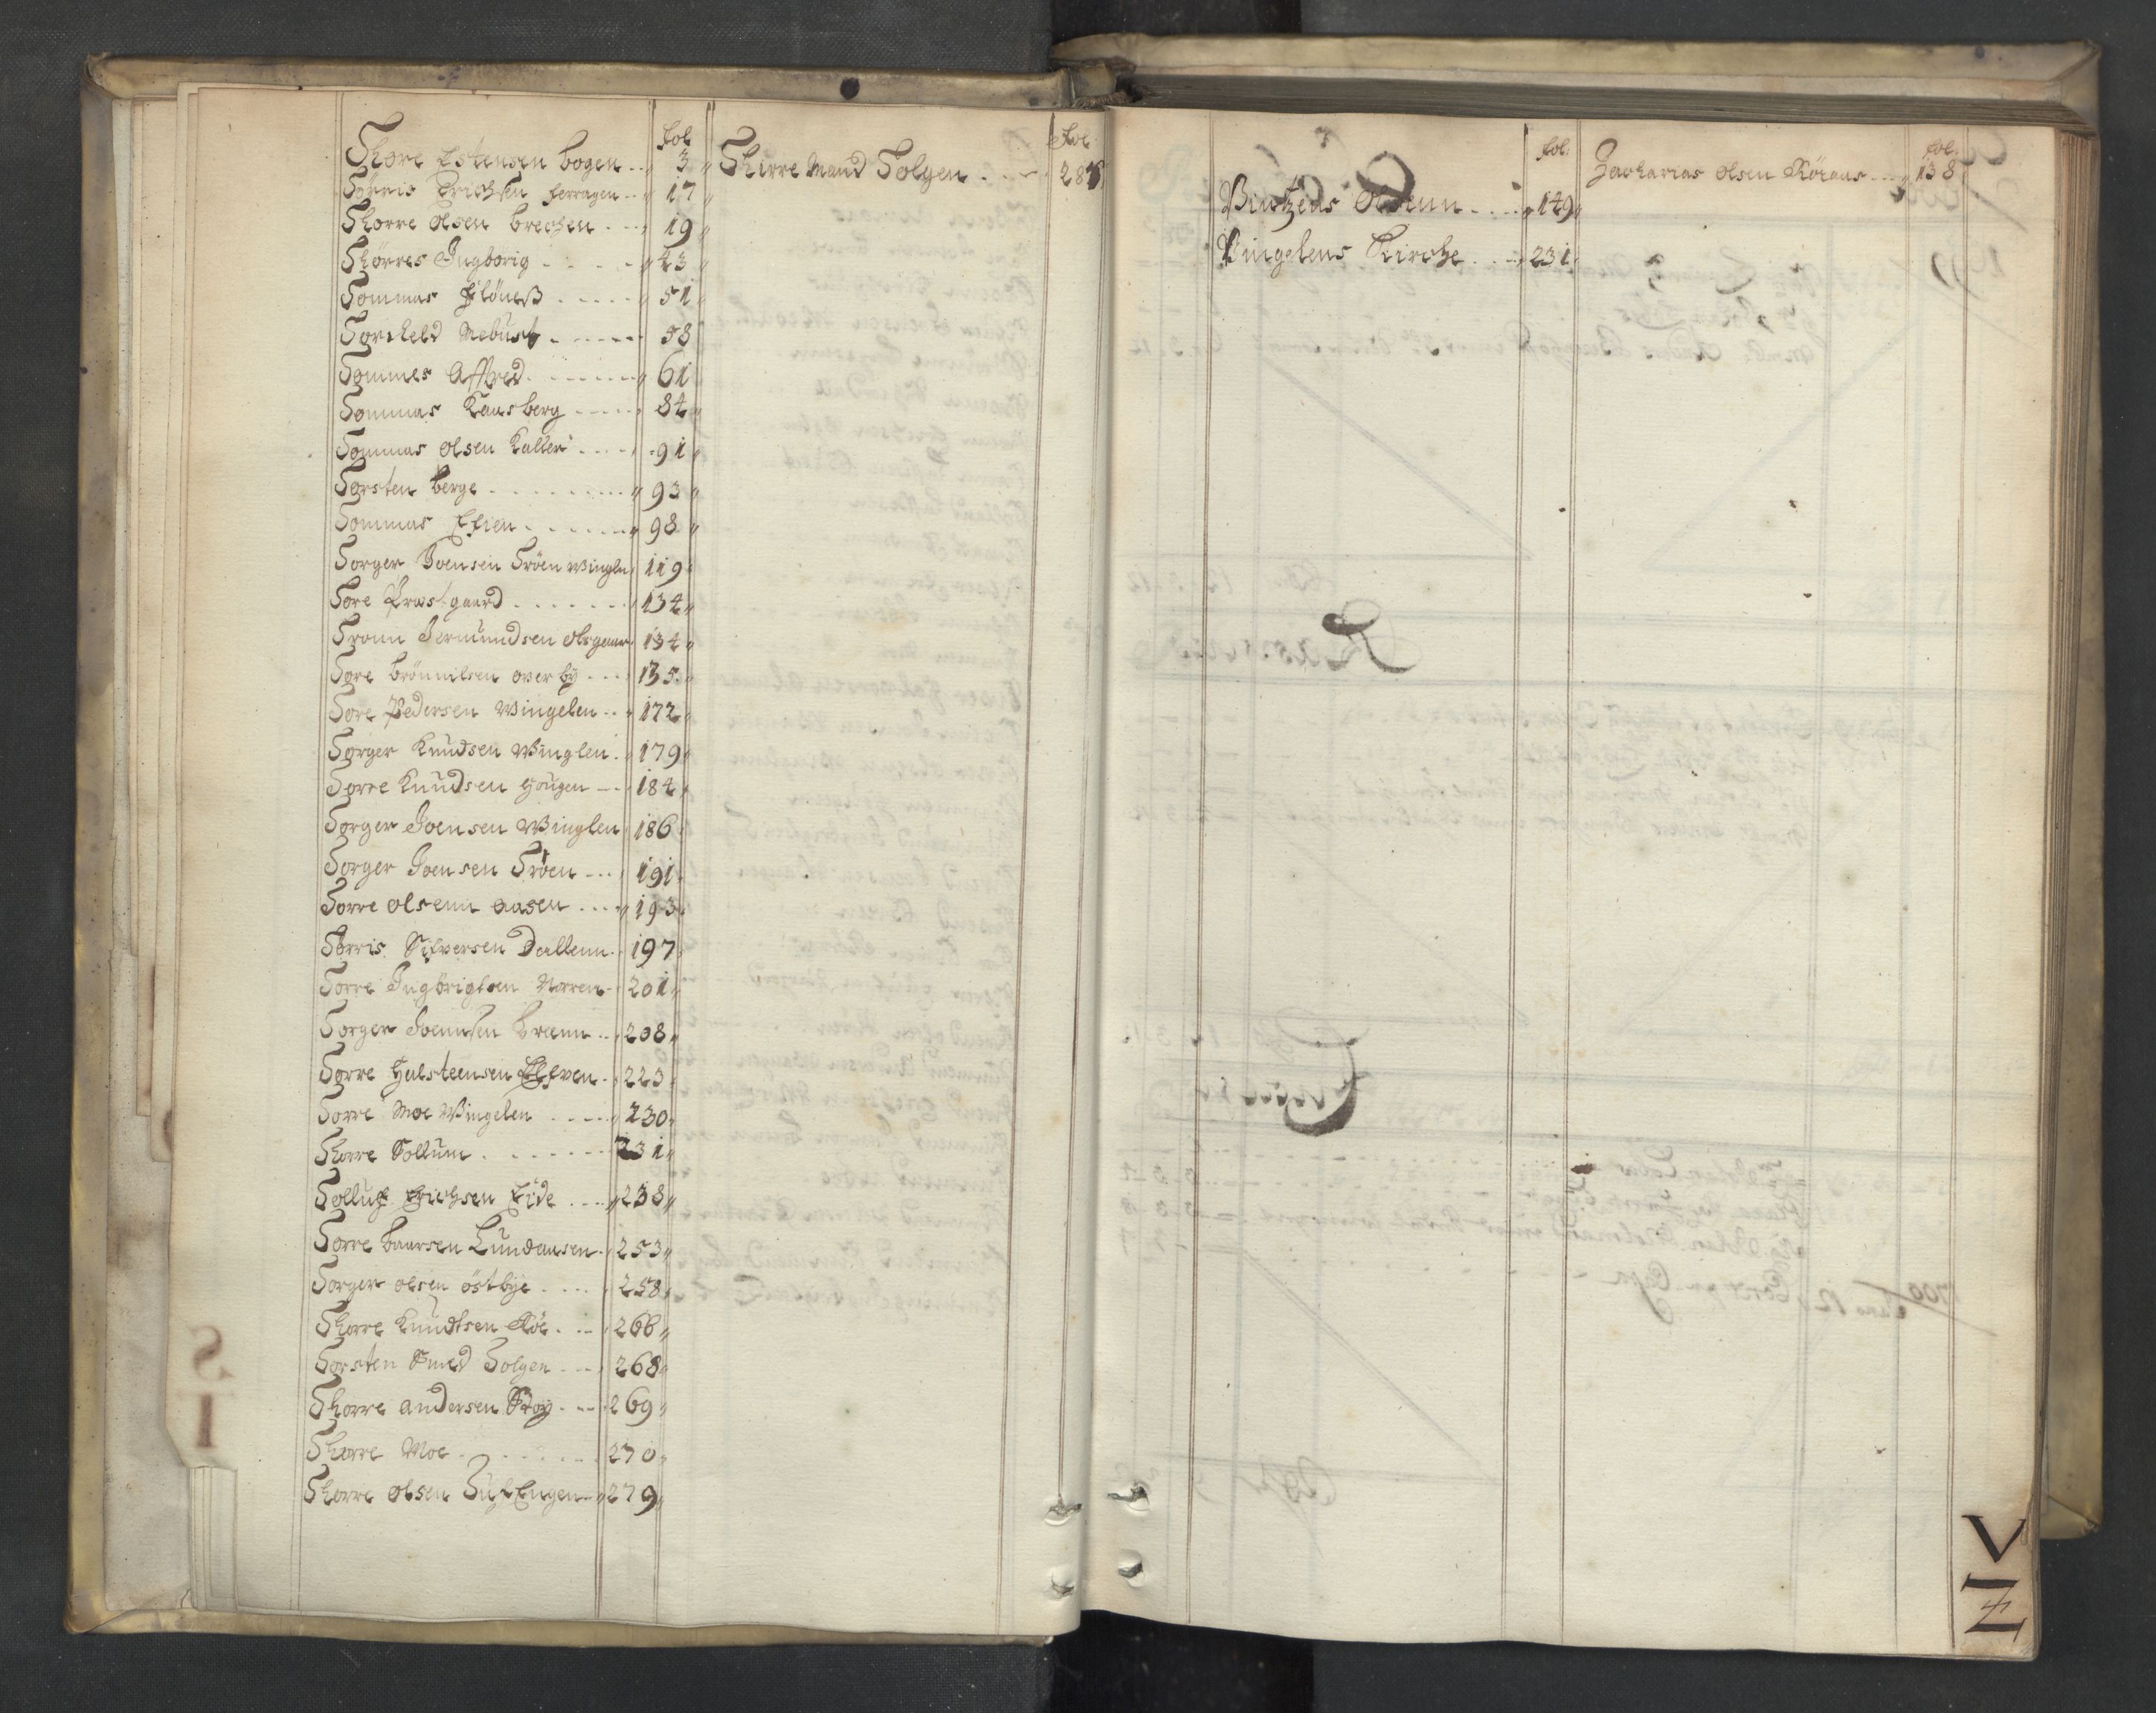 fol
Thore Estensen bogen 3
Törris Erichsen ferragen 17
Thorre olsen brechen 19
Thörres Ingborig 23
Tommas Flöneß 51
Torcheld Mebust 58
Tommes Affred 61
Tommas Kaasberg 84
Tommas olsen Kaller 91
Torsten berge 93
Tommas Efien 98
Torger Joensen Tröen Winglen 119
Tore Præstgaard 134
Tronn Jermundsen olsgaard 134
Tore brönnilsen overby 135
Tore Pedersen Wingelen 172
Torger Knudsen Winglen 179
Torre Knudsen Hougen 184
Torger Joensen Winglen 186
Torger Joensen Tröen 191
Torre olsenn aasen 193
Törris Silversen Dallenn 197
Torre Ingbrigtsen Norren 201
Torger Joennsen brænn 208
Torre Halsteensen Elfven 223
Torre Moe Wingelen 230
Thorre Sollum 231
Tolluf Erichsen Eide 238
Torre baarsen Lundamsen 253
Torger olsen östbye 258
Thorre Knudtsen Röe 266
Torsten Smed Tolgen 268
Thorre andersen Stoy 269
Thorre Moe 270
Thorre olsen Engen 279
fol.
Thirre Mand Tolgen 281
fol.
Vintzens Olsenn 149
Vingelens Kirche 231
fol.
Zacharias olsen Röraas 138
V
Z